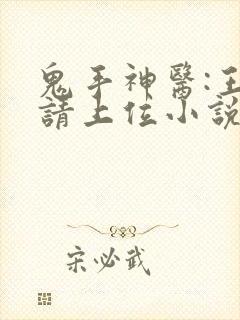 鬼手神醫:王
請上位小說
宋必武